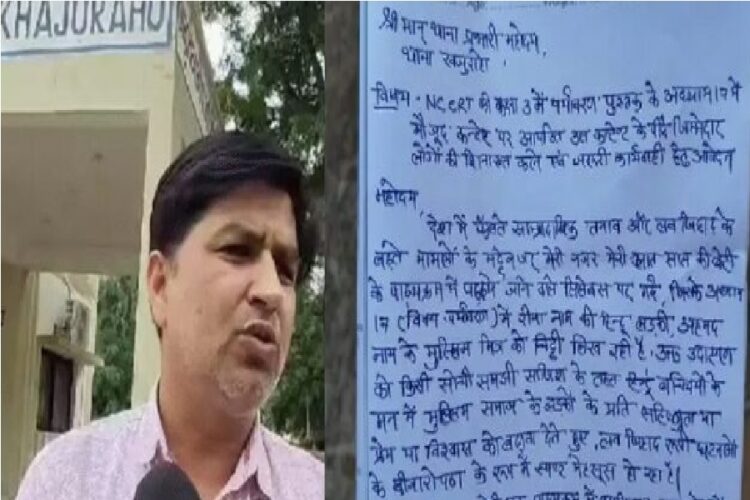 KHAJURAHO
श्रीमान् थाना प्रभारी महोदय
थाना खजुराहो
विषय - NCERT की कक्षा 3 में पर्यावरण पुस्तक के अध्याय 17 में
मौजूद कन्टेंट पर आपत्ति एवं कन्टेंट के पीछे जिम्मेदार
लोगों की शिनाख्त करने एवं जरूरी कार्यवाही हेतु आवेदन
महोदय,
देश में फैलते साम्प्रदायिक तनाव और लव जिहाद के
बढ़ते मामलों के मद्देनजर मेरी नजर मेरी सात साल की बेटी
के पाठ्यक्रम में पढ़ाये जाने वाले सिलेबस पर गई, जिसके अध्याय
17 (विषय पर्यावरण) में रीना नाम की हिन्दू लड़की, अहमद
नाम के मुस्लिम मित्र को चिट्ठी लिख रही है, उक्त उदाहरण
को किसी सोची समझी साजिश के तहत हिन्दू बच्चियों के
मन में मुस्लिम समाज के लड़कों के प्रति सहिष्णुता या
प्रेम या विश्वास को बढ़ावा देते हुए, लव जिहाद रूपी घटनाओं
के बीजारोपण के रूप में स्पष्ट महसूस हो रहा है।